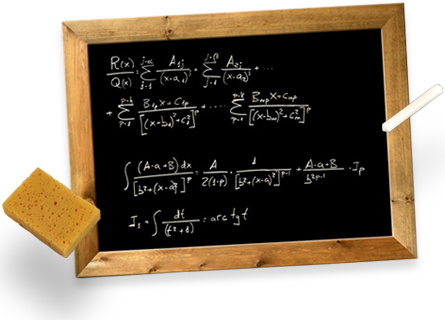 R(x)/Q(x) = Σ_{j=1}^{j=α} A_{1j}/(x-a_1)^j + Σ_{j=1}^{j=β} A_{2j}/(x-a_2)^j + ...
+ Σ_{p=1}^{p=k} B_{1p}x+C_{1p}/[(x-b_1)²+c_1²]^p + ... Σ_{p=1} B_{mp}x+C_{mp}/[(x-b_m)²+c_m²]^p
∫ (A·a+B)dx/[b²+(x-a)²]^p = A/2(1-p) · 1/[b²+(x-a)²]^{p-1} + A·a+B/b^{2p-1} · I_p
I_1 = ∫ dt/(t²+1) = arc tg t